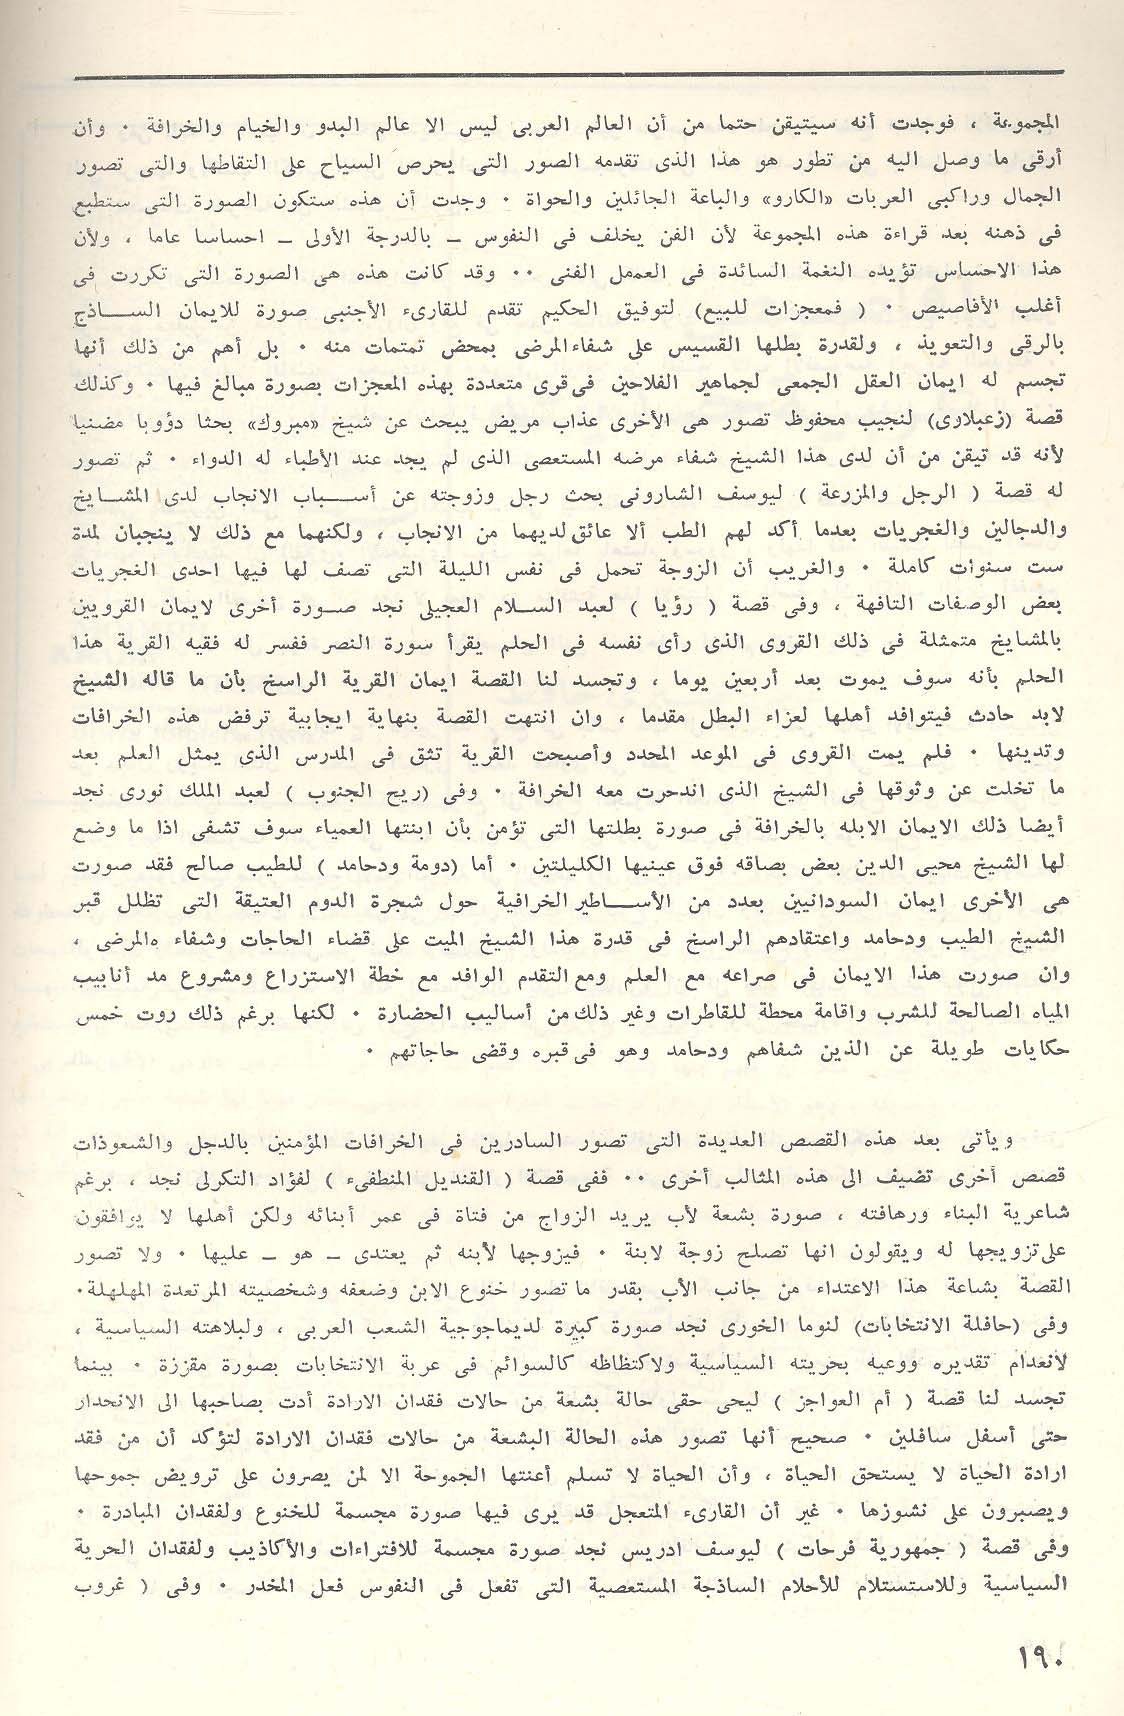 المجموعة ، فوجدت أنه سيتيقن حتما من أن العالم العربى ليس الا عالم البدو والخيام والخرافة ٠ وأن
أرقى ما وصل اليه من تطور هو هذا الذى تقدمه الصور التى يحرص السياح على التقاطها والتى تصور
الجمال وراكبى العربات «الكارو» والباعة الجائلين والحواة ٠ وجدت أن هذه ستكون الصورة التى ستطبع
فى ذهنه بعد قراءة هذه المجموعة لأن الفن يخلف فى النفوس ــ بالدرجة الأولى ــ احساسا عاما ، ولأن
هذا الاحساس تؤيده النغمة السائدة فى العمل الفنى ٠٠ وقد كانت هذه هى الصورة التى تكررت فى
أغلب الأقاصيص ٠ ( فمعجزات للبيع) لتوفيق الحكيم تقدم للقارىء الأجنبى صورة للايمان الســـاذج
بالرقى والتعويذ ، ولقدرة بطلها القسيس على شفاء المرضى بمحض تمتمات منه ٠ بل أهم من ذلك أنها
تجسم له ايمان العقل الجمعى لجماهير الفلاحين فى قرى متعددة بهذه المعجزات بصورة مبالغ فيها ٠ وكذلك
قصة (زعبلاوى) لنجيب محفوظ تصور هى الأخرى عذاب مريض يبحث عن شيخ «مبروك» بحثا دؤوبا مضنيا
لأنه قد تيقن من أن لدى هذا الشيخ شفاء مرضه المستعصى الذى لم يجد عند الأطباء له الدواء ٠ ثم تصور
له قصة ( الرجل والمزرعة ) ليوسف الشارونى بحث رجل وزوجته عن أســـباب الانجاب لدى المشـــايخ
والدجالين والغجريات بعدما أكد لهم الطب ألا عائق لديهما من الانجاب ، ولكنهما مع ذلك لا ينجبان لمدة
ست سنوات كاملة ٠ والغريب أن الزوجة تحمل فى نفس الليلة التى تصف لها فيها احدى الغجريات
بعض الوصفات التافهة ، وفى قصة ( رؤيا ) لعبد الســلام العجيلى نجد صــورة أخرى لايمان القرويين
بالمشايخ متمثلة فى ذلك القروى الذى رأى نفسه فى الحلم يقرأ سورة النصر ففسر له فقيه القرية هذا
الحلم بأنه سوف يموت بعد أربعين يوما ، وتجسد لنا القصة ايمان القرية الراسخ بأن ما قاله الشيخ
لابد حادث فيتوافد أهلها لعزاء البطل مقدما ، وان انتهت القصة بنهاية ايجابية ترفض هذه الخرافات
وتدينها ٠ فلم يمت القروى فى الموعد المحدد وأصبحت القرية تثق فى المدرس الذى يمثل العلم بعد
ما تخلت عن وثوقها فى الشيخ الذى اندحرت معه الخرافة ٠ وفى (ريح الجنوب ) لعبد الملك نورى نجد
أيضا ذلك الايمان الابله بالخرافة فى صورة بطلتها التى تؤمن بأن ابنتها العمياء سوف تشفى اذا ما وضع
لها الشيخ محيى الدين بعض بصاقه فوق عينيها الكليلتين ٠ أما (دومة ودحامد ) للطيب صالح فقد صورت
هى الأخرى ايمان السودانيين بعدد من الأســـاطير الخرافية حول شجرة الدوم العتيقة التى تظلل قبر
الشيخ الطيب ودحامد واعتقادهم الراسخ فى قدرة هذا الشيخ الميت على قضاء الحاجات وشفاء المرضى ،
وان صورت هذا الايمان فى صراعه مع العلم ومع التقدم الوافد مع خطة الاستزراع ومشروع مد أنابيب
المياه الصالحة للشرب واقامة محطة للقاطرات وغير ذلك من أساليب الحضارة ٠ لكنها برغم ذلك روت خمس
حكايات طويلة عن الذين شفاهم ودحامد وهو فى قبره وقضى حاجاتهم ٠
ويأتى بعد هذه القصص العديدة التى تصور السادرين فى الخرافات المؤمنين بالدجل والشعوذات
قصص أخرى تضيف الى هذه المثالب أخرى ٠٠ ففى قصة ( القنديل المنطفىء ) لفؤاد التكرلى نجد ، برغم
شاعرية البناء ورهافته ، صورة بشعة لأب يريد الزواج من فتاة فى عمر أبنائه ولكن أهلها لا يوافقون
على تزويجها له ويقولون انها تصلح زوجة لابنة ٠ فيزوجها لأبنه ثم يعتدى ــ هو ــ عليها ٠ ولا تصور
القصة بشاعة هذا الاعتداء من جانب الأب بقدر ما تصور خنوع الابن وضعفه وشخصيته المرتعدة المهلهلة٠
وفى (حافلة الانتخابات) لنوما الخورى نجد صورة كبيرة لديماجوجية الشعب العربى ، ولبلاهته السياسية ،
لانعدام تقديره ووعيه بحريته السياسية ولاكتظاظه كالسوائم فى عربة الانتخابات بصورة مقززة ٠ بينما
تجسد لنا قصة ( أم العواجز ) ليحى حقى حالة بشعة من حالات فقدان الارادة أدت بصاحبها الى الانحدار
حتى أسفل سافلين ٠ صحيح أنها تصور هذه الحالة البشعة من حالات فقدان الارادة لتؤكد أن من فقد
ارادة الحياة لا يستحق الحياة ، وأن الحياة لا تسلم أعنتها الجموحة الا لمن يصرون على ترويض جموحها
ويصبرون على نشوزها ٠ غير أن القارىء المتعجل قد يرى فيها صورة مجسمة للخنوع ولفقدان المبادرة ٠
وفى قصة ( جمهورية فرحات ) ليوسف ادريس نجد صورة مجسمة للافتراءات والأكاذيب ولفقدان الحرية
السياسية وللاستستلام للأحلام الساذجة المستعصية التى تفعل فى النفوس فعل المخدر ٠ وفى ( غروب
١٩٠